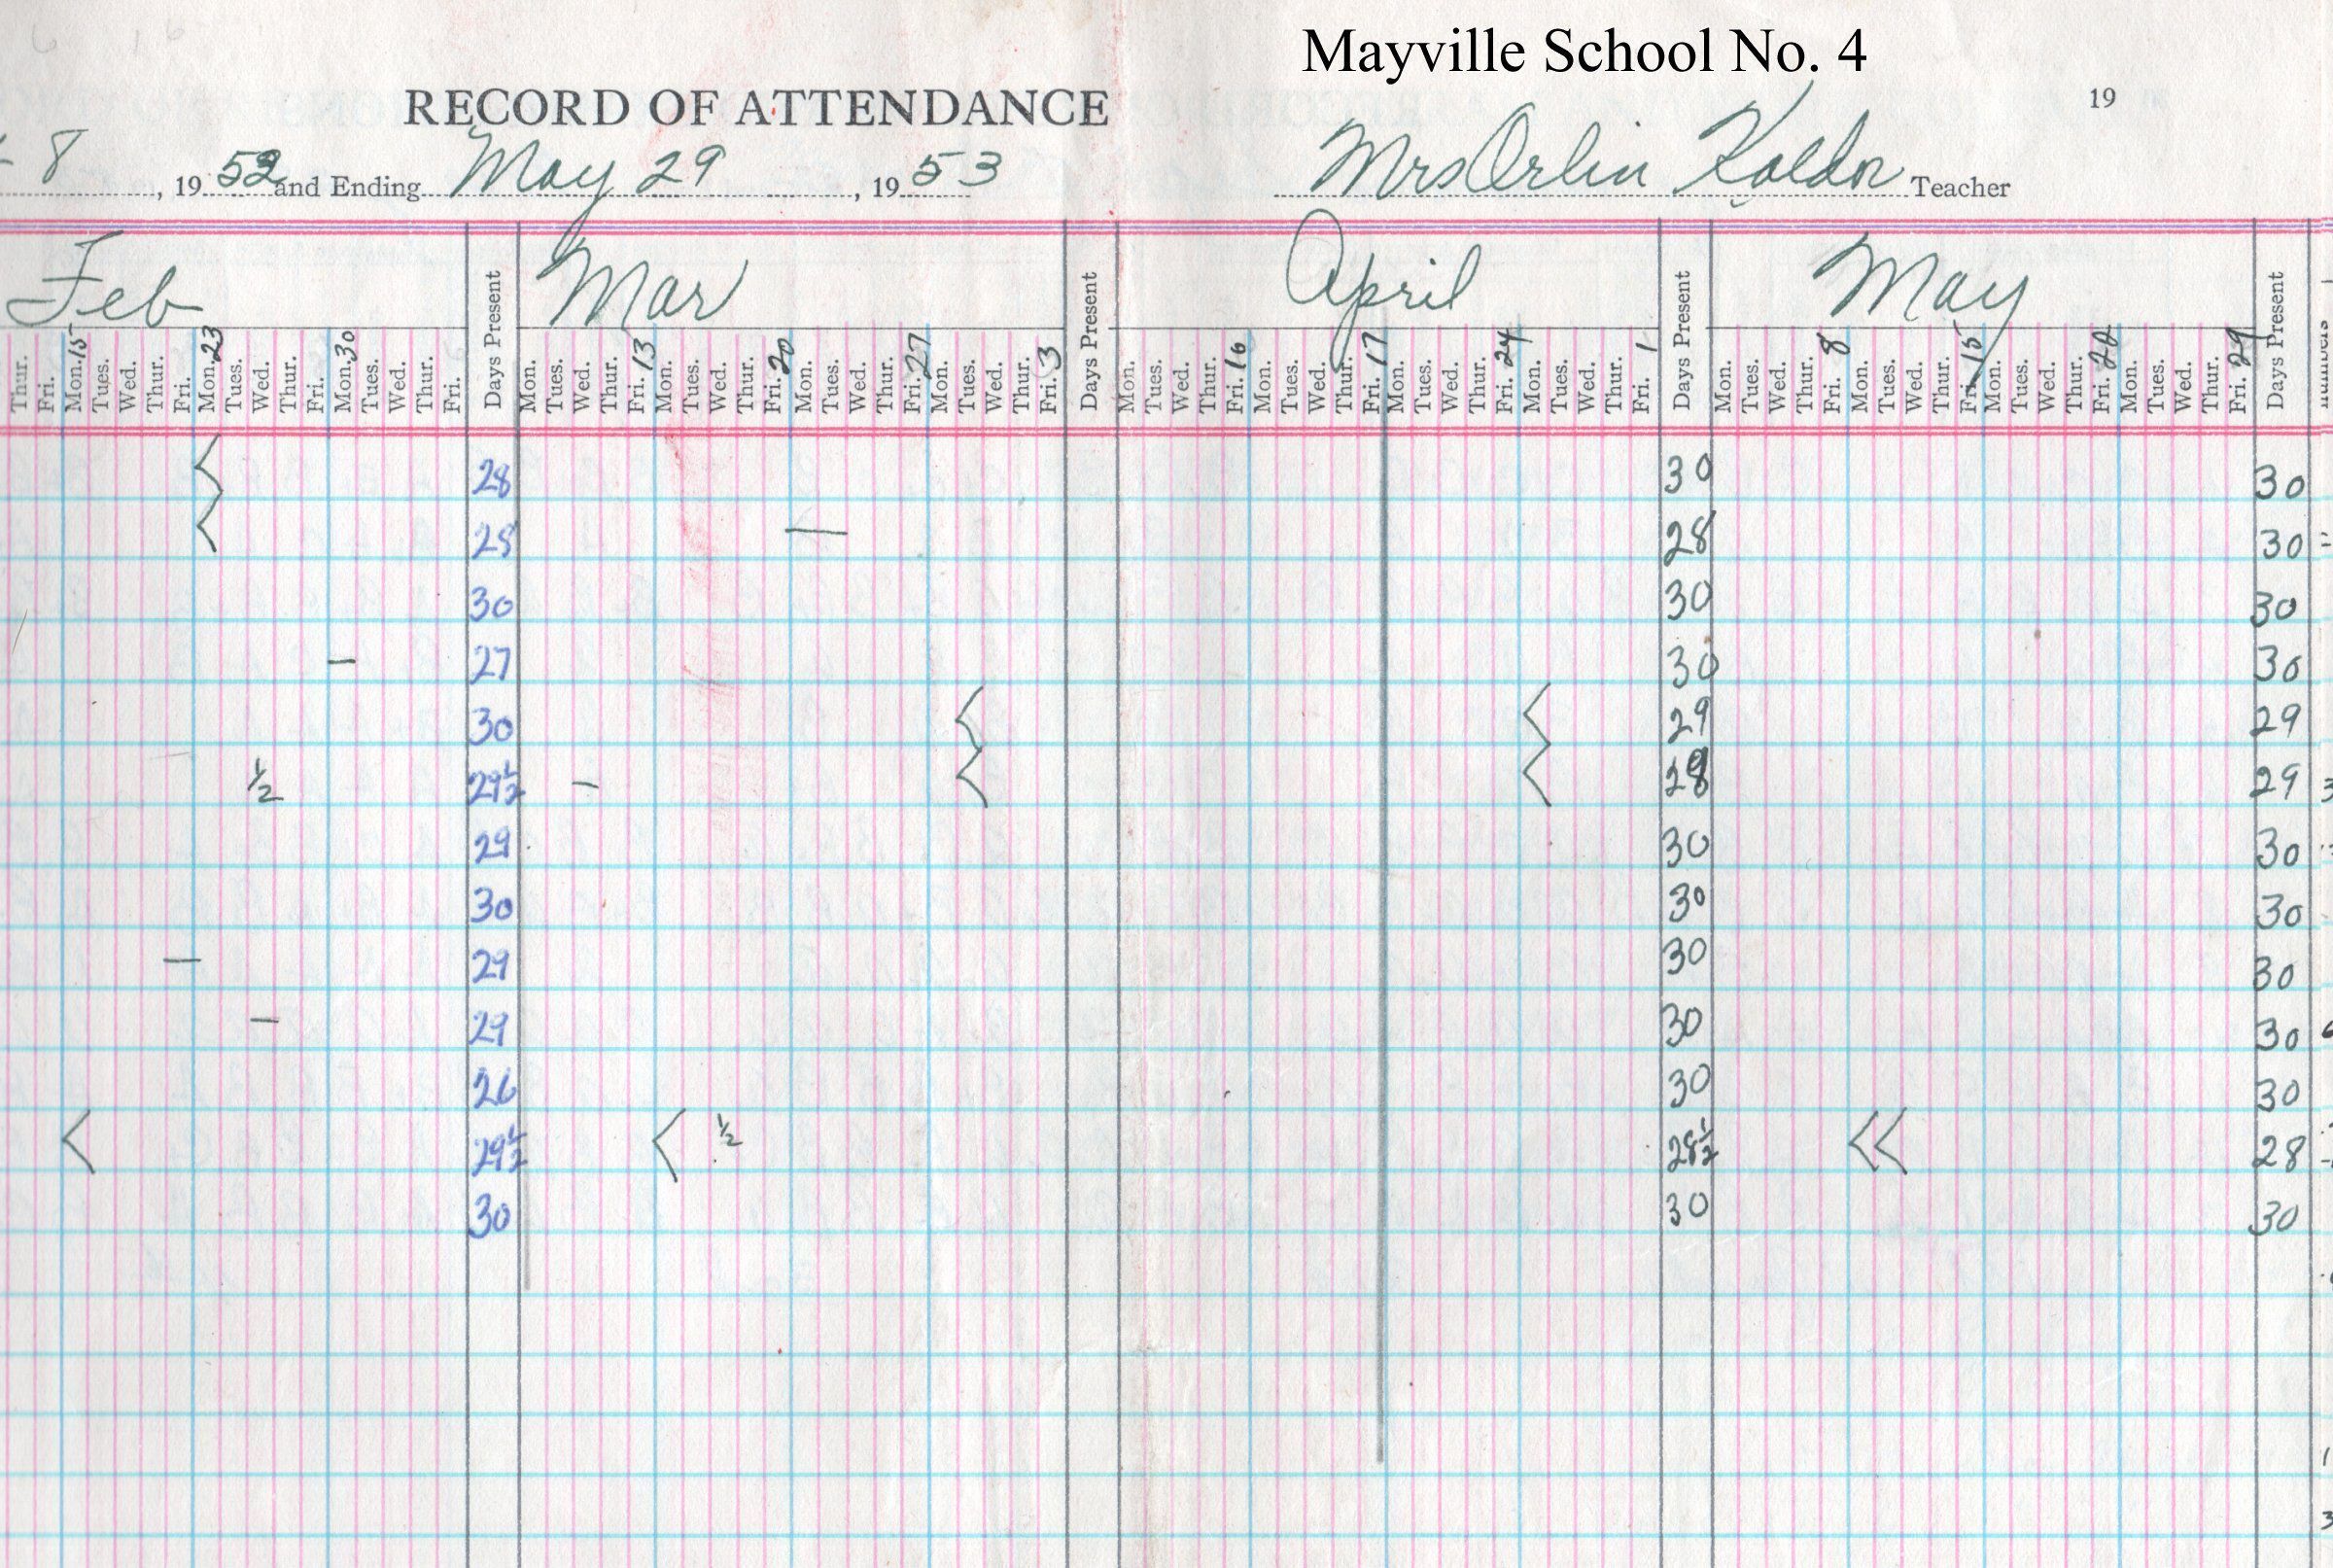 Mayville School No. 4
RECORD OF ATTENDANCE 19
8, 1952 and Ending May 29, 1953 Mrs Orlin Kaldor Teacher
Feb Days Present Mar Days Present April Days Present May Days Present
Thur. Fri. Mon. 15 Tues. Wed. Thur. Fri. Mon. 23 Tues. Wed. Thur. Fri. Mon. 30 Tues. Wed. Thur. Fri. Mon. Tues. Wed. Thur. Fri. 13 Mon. Tues. Wed. Thur. Fri. 20 Mon. Tues. Wed. Thur. Fri. 27 Mon. Tues. Wed. Thur. Fri. 3 Mon. Tues. Wed. Thur. Fri. 16 Mon. Tues. Wed. Thur. Fri. 17 Mon. Tues. Wed. Thur. Fri. 24 Mon. Tues. Wed. Thur. Fri. 1 Mon. Tues. Wed. Thur. Fri. 8 Mon. Tues. Wed. Thur. Fri. 15 Mon. Tues. Wed. Thur. Fri. 22 Mon. Tues. Wed. Thur. Fri. 29
28 30 30
28 — 28 30
30 30 30
— 27 30 30
30 29 29
½ 29½ — 28 29
29 30 30
30 30 30
— 29 30 30
— 29 30 30
26 30 30
29½ ½ 28½ 28
30 30 30